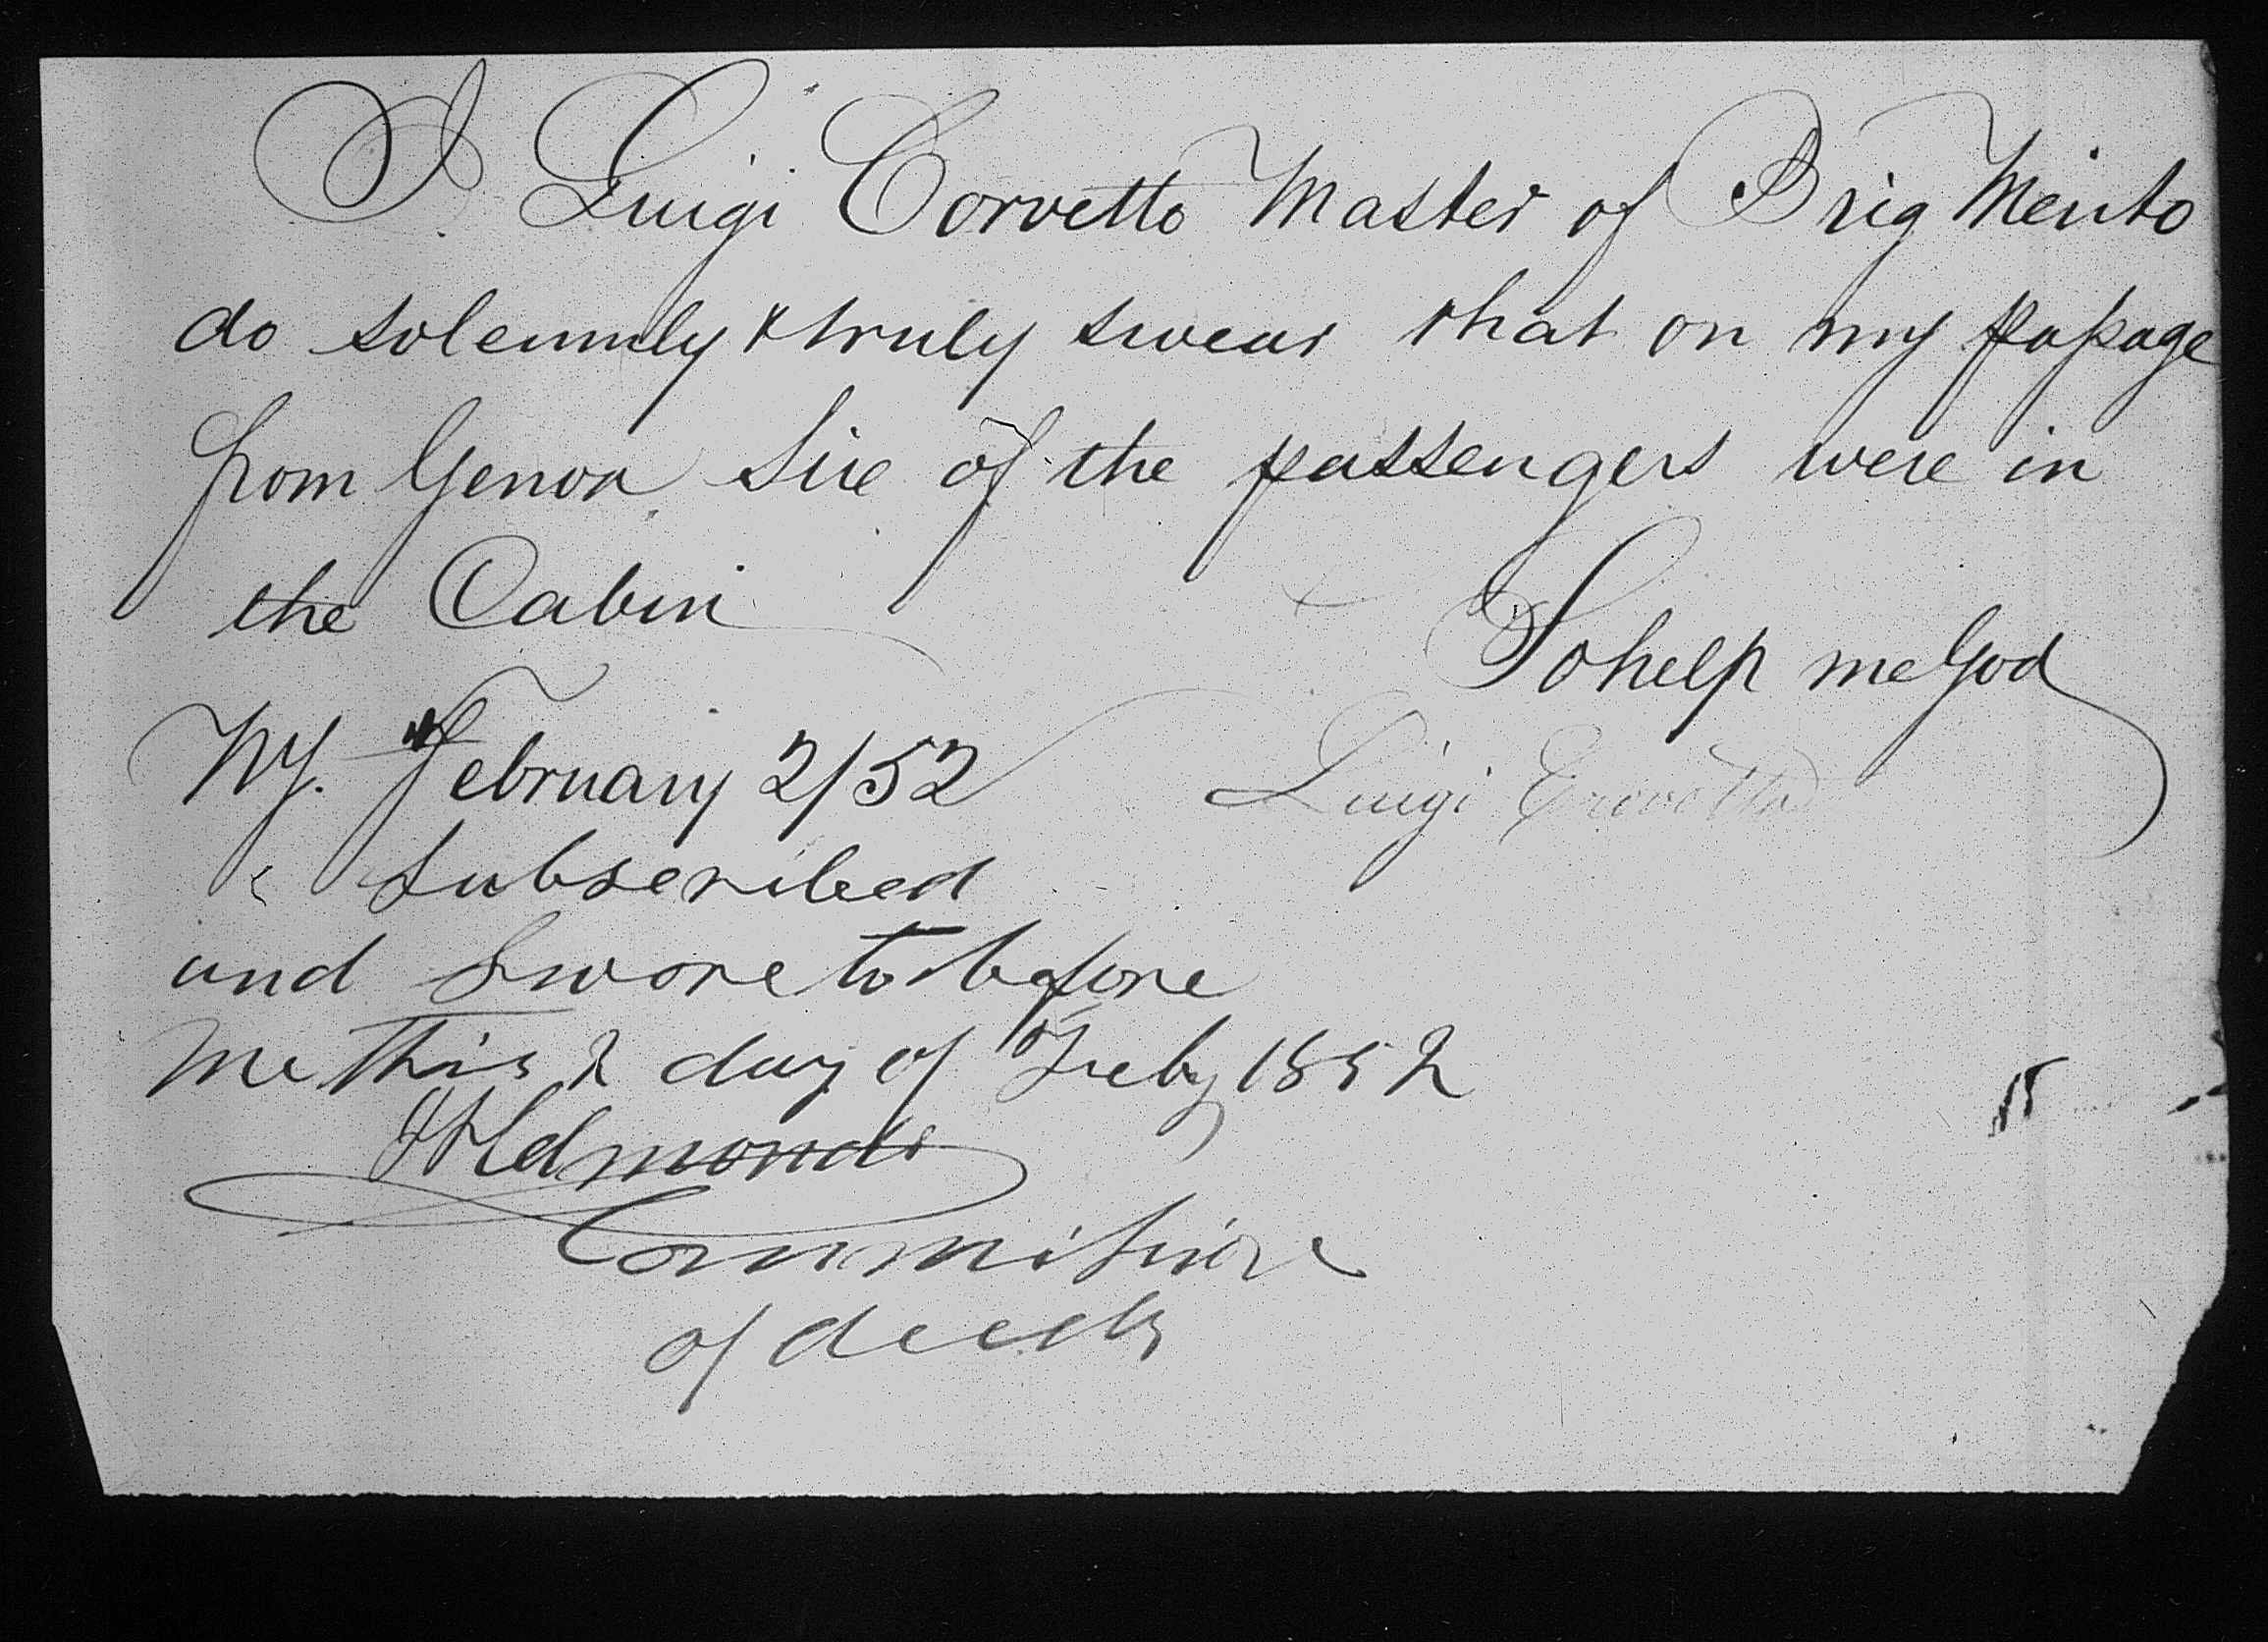 I Luigi Corvetto Master of Brig Merito
do solemnly & truly swear that on my passage
from Genoa Six of the passengers were in
the Cabin
So help me God
NY. February 2/52
Luigi Crovetto
Subscribed
and Swore to before
me this 2 day of Feby 1852
Edmonds
Commissione
of deeds